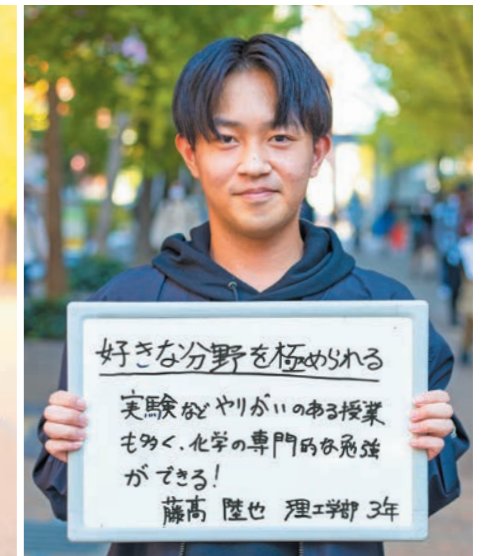 好きな分野を極められる
実験など やりがいのある授業
も多く、化学の専門的な勉強
ができる！
藤高 陸也 理工学部 3年